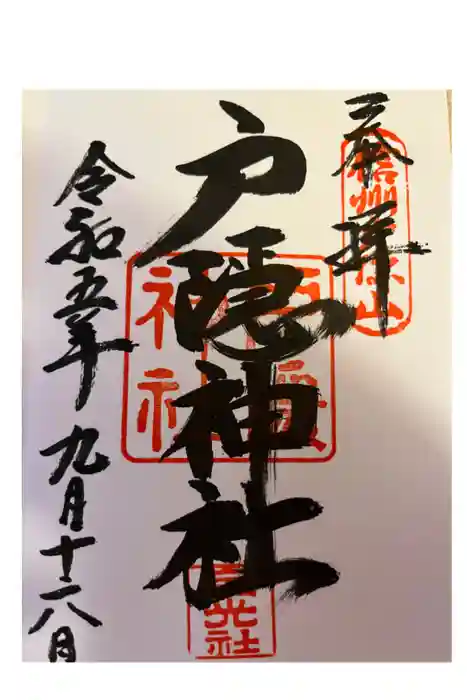 奉拝
信州戸隠山
戸隠神社
戸隠神社
宝光社
令和五年九月十六日